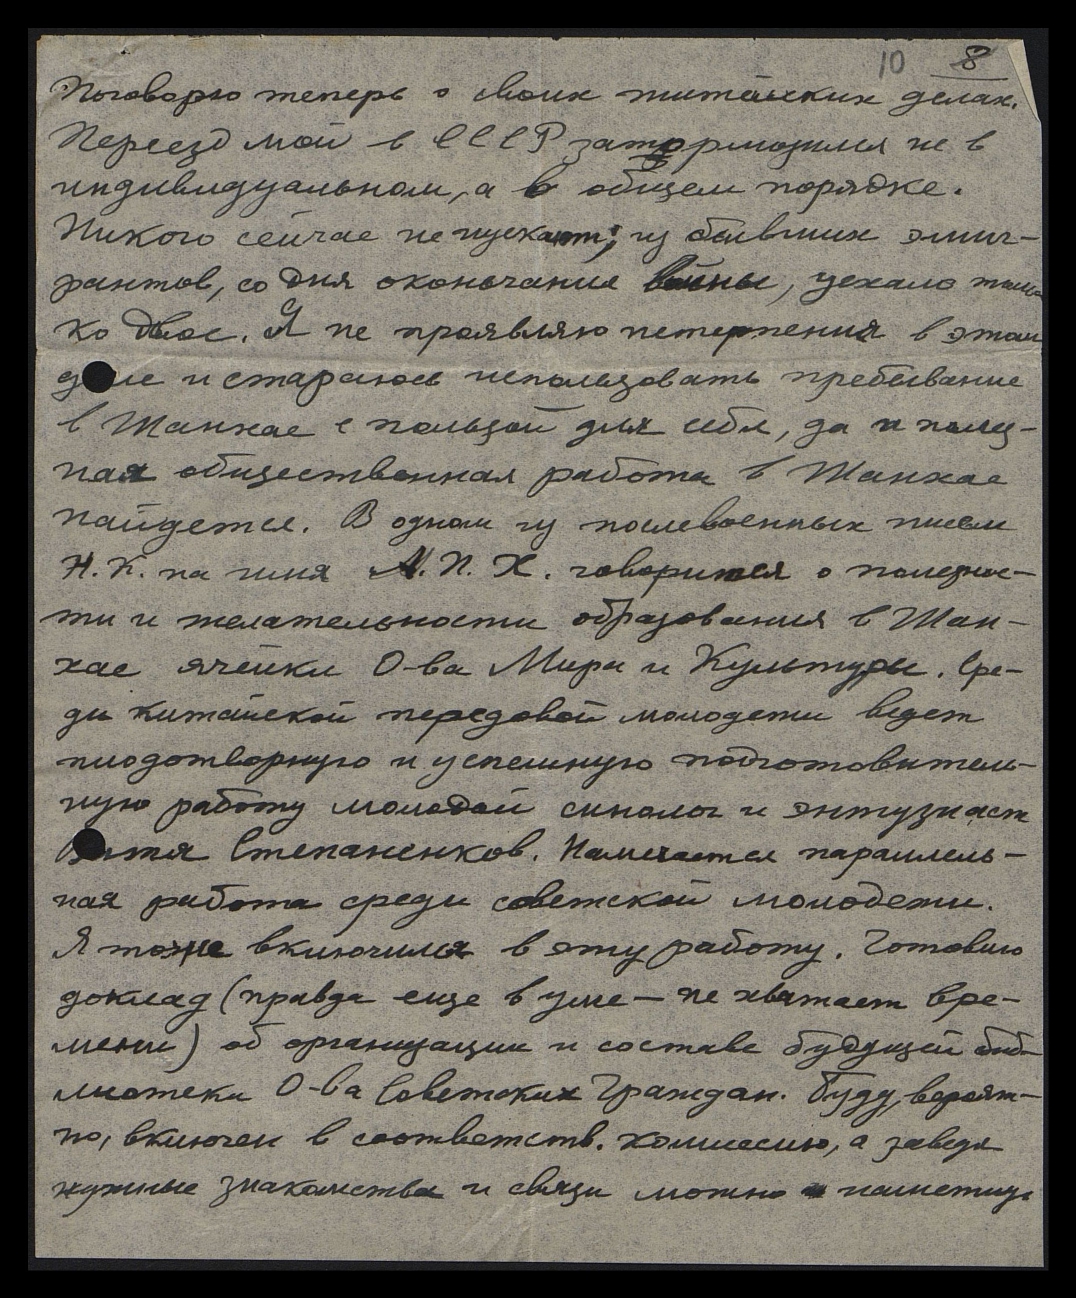 10 8
Поговорю теперь о своих житейских делах.
Переезд мой в СССР затормозился не в
индивидуальном, а в общем порядке.
Никого сейчас не пускают; из бывших эмиг-
рантов, со дня окончания войны, уехало толь-
ко двое. Я не проявляю нетерпения в этом
деле и стараюсь использовать пребывание
в Шанхае с пользой для себя, да и полез-
ная общественная работа в Шанхае
найдется. В одном из послевоенных писем
Н.К. на имя А.П.Х. говорится о полезнос-
ти и желательности образования в Шан-
хае ячейки О-ва Мира и Культуры. Сре-
ди китайской передовой молодежи ведет
плодотворную и успешную подготовитель-
ную работу молодой синолог и энтузиаст
Витя Степаненков. Намечается параллель-
ная работа среди советской молодежи.
Я тоже включился в эту работу. Готовлю
доклад (правда еще в уме — не хватает вре-
мени) об организации и составе будущей биб-
лиотеки О-ва Советских Граждан. Буду, вероят-
но, включен в соответств. комиссию, а заведя
нужные знакомства и связи можно и